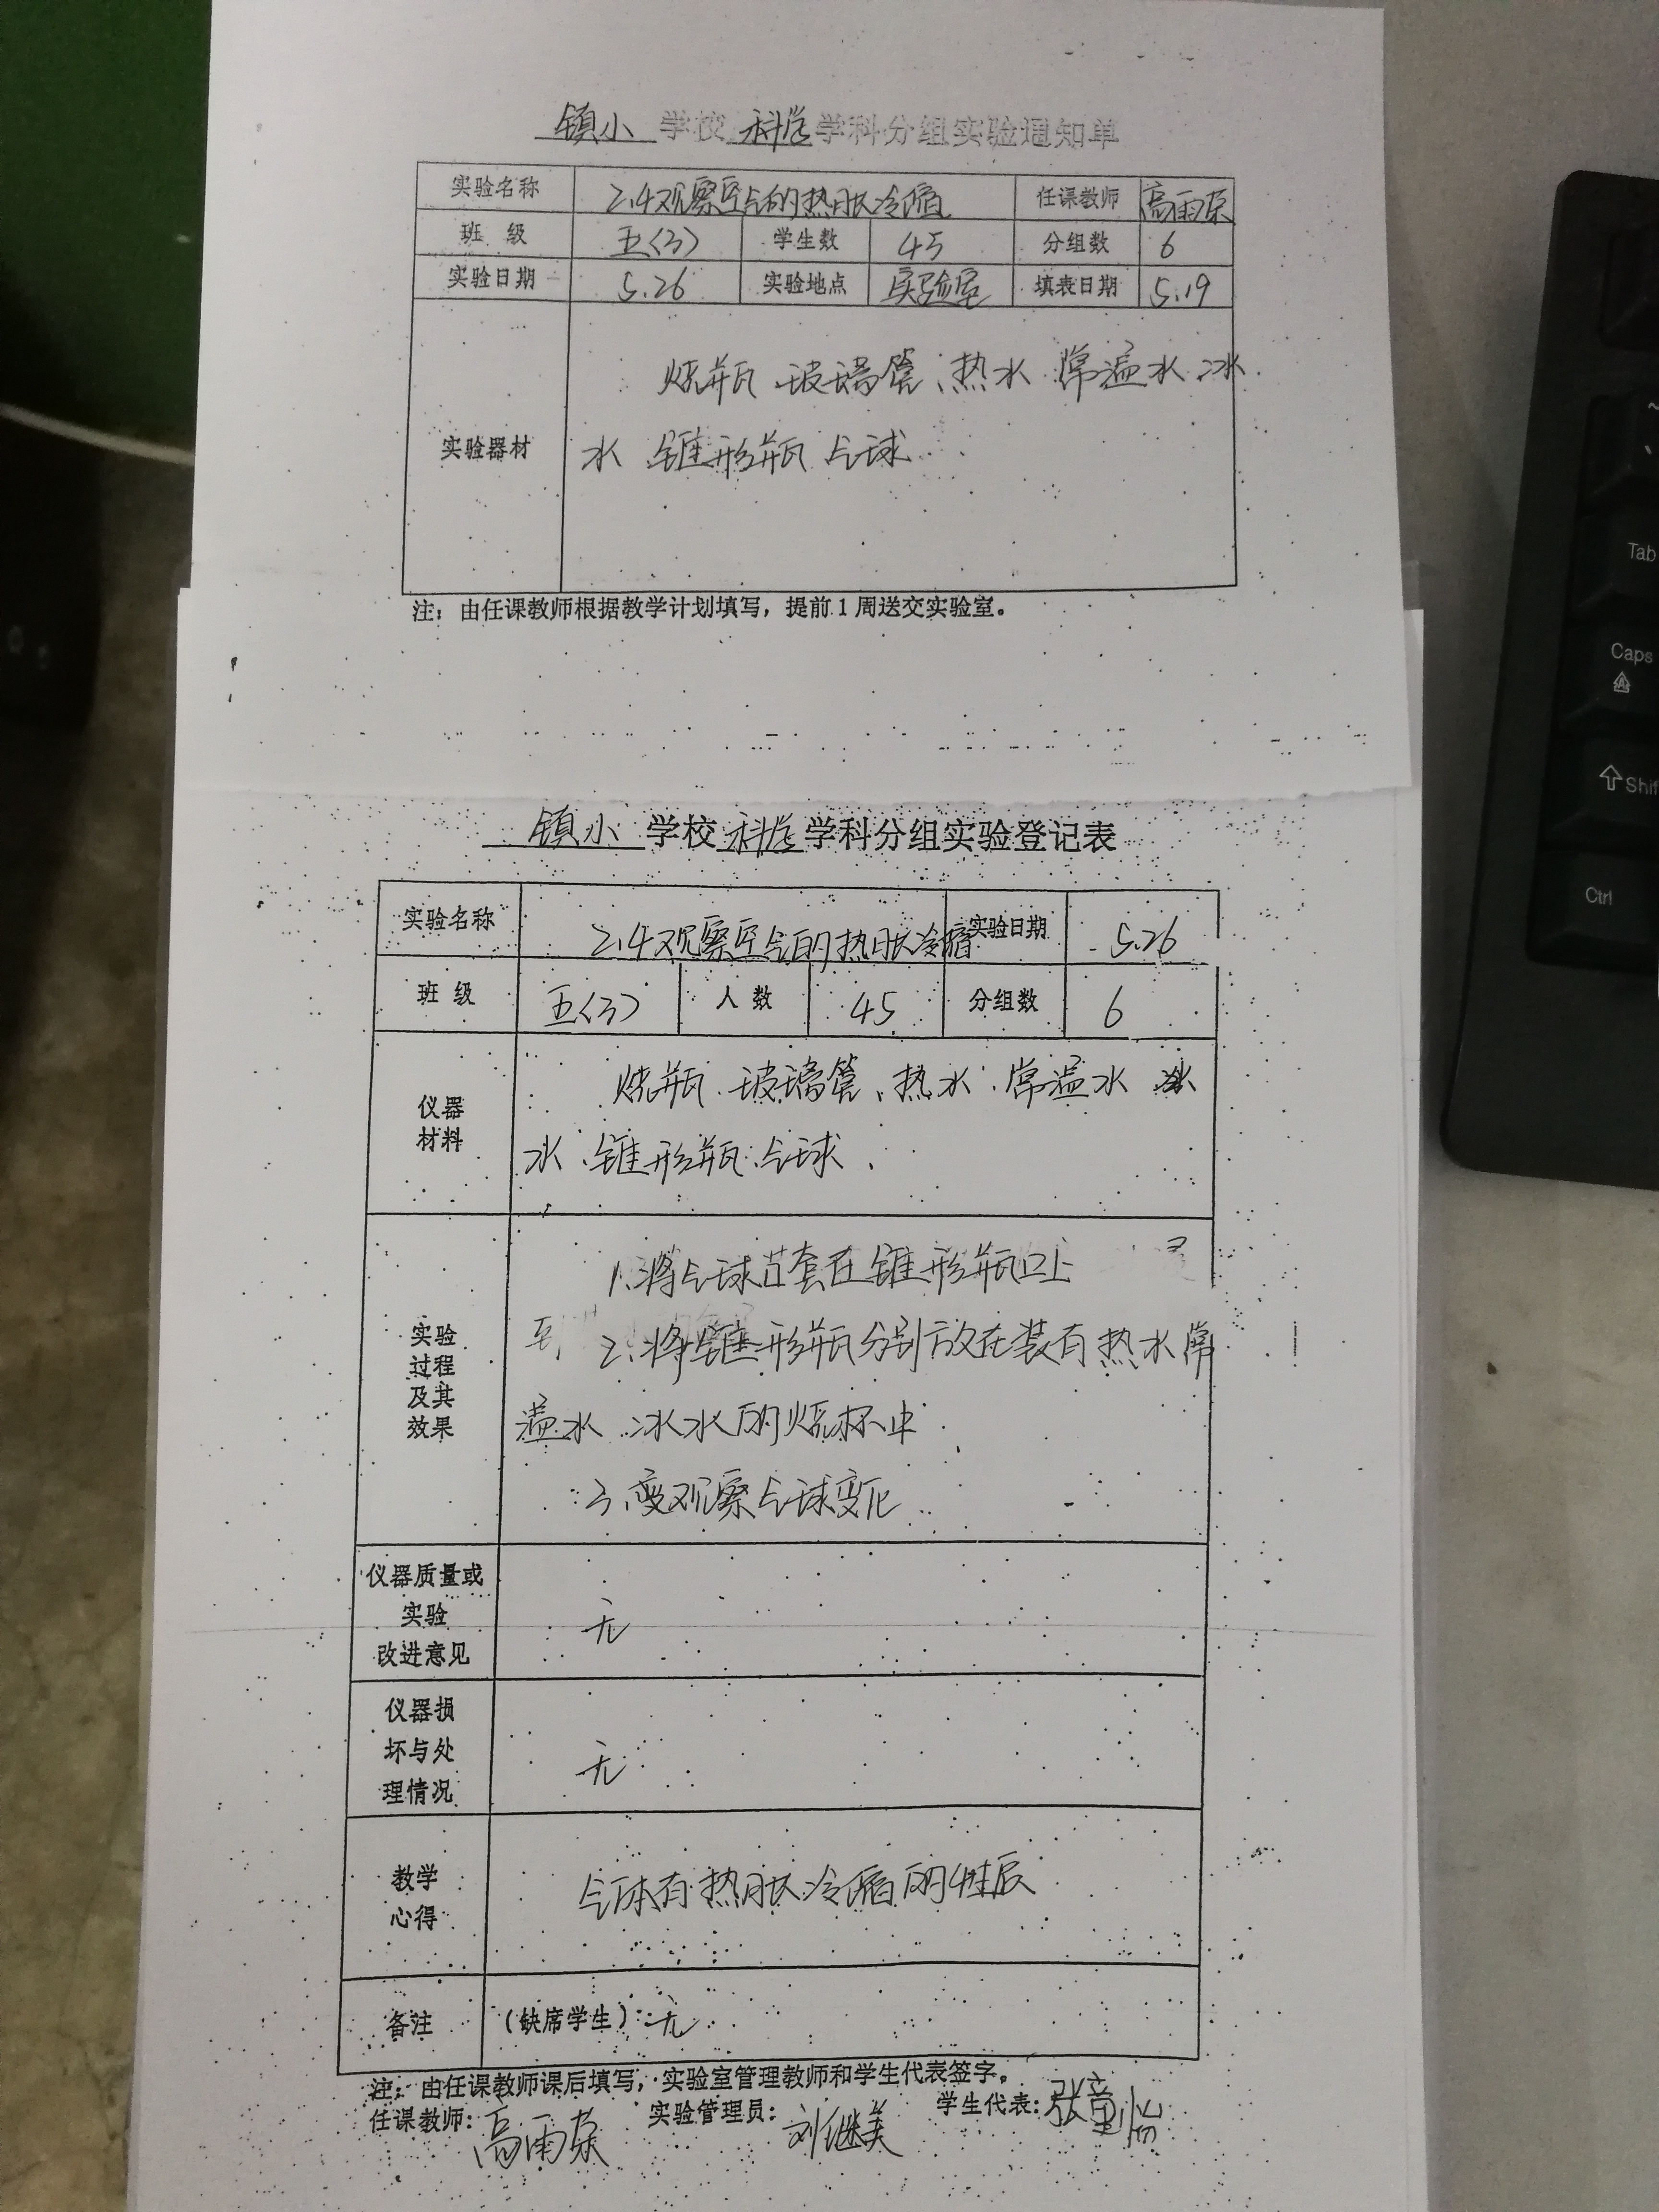 镇小 学校 科学 学科分组实验通知单
实验名称 2.4观察空气的热胀冷缩 任课教师 高雨荣
班 级 五(3) 学生数 45 分组数 6
实验日期 5.26 实验地点 实验室 填表日期 5.19
实验器材 烧瓶、玻璃管、热水、常温水、冰
水、锥形瓶、气球
注：由任课教师根据教学计划填写，提前1周送交实验室。
镇小 学校 科学 学科分组实验登记表
实验名称 2.4观察空气的热胀冷缩 实验日期 5.26
班 级 五(3) 人 数 45 分组数 6
仪器
材料
烧瓶、玻璃管、热水、常温水 冰
水、锥形瓶、气球
实验
过程
及其
效果
1.将气球套在锥形瓶口上
2.将锥形瓶分别放在装有热水 常
温水 冰水的烧杯中
3.观察气球变化
仪器质量或
实验
改进意见
无
仪器损
坏与处
理情况
无
教学
心得
气体有热胀冷缩的性质
备注 (缺席学生) 无
注：由任课教师课后填写，实验室管理教师和学生代表签字。
任课教师: 高雨荣 实验管理员: 刘继美 学生代表: 张童怡
Tab
Caps
Shif
Ctrl